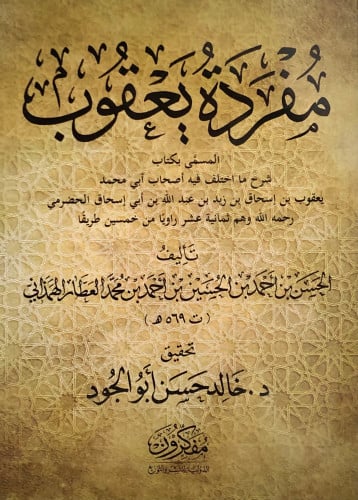 مُفْرَدَةُ يَعْقُوب
المسمى بكتاب
شرح ما اختلف فيه أصحاب أبي محمد
يعقوب بن إسحاق بن زيد بن عبد الله بن أبي إسحاق الحضرمي
رحمه الله وهم ثمانية عشر راويًا من خمسين طريقًا
تَأليفُ
الحَسَن بن أحْمَد بن الحُسَين بن أَحْمَد بن مُحَمَّد العَطار الهَمَذاني
( ت ٥٦٩ هـ )
تحقيق
د. خَالد حَسَن أبُو الجُود
مفكرون
الدولية للنشر والتوزيع